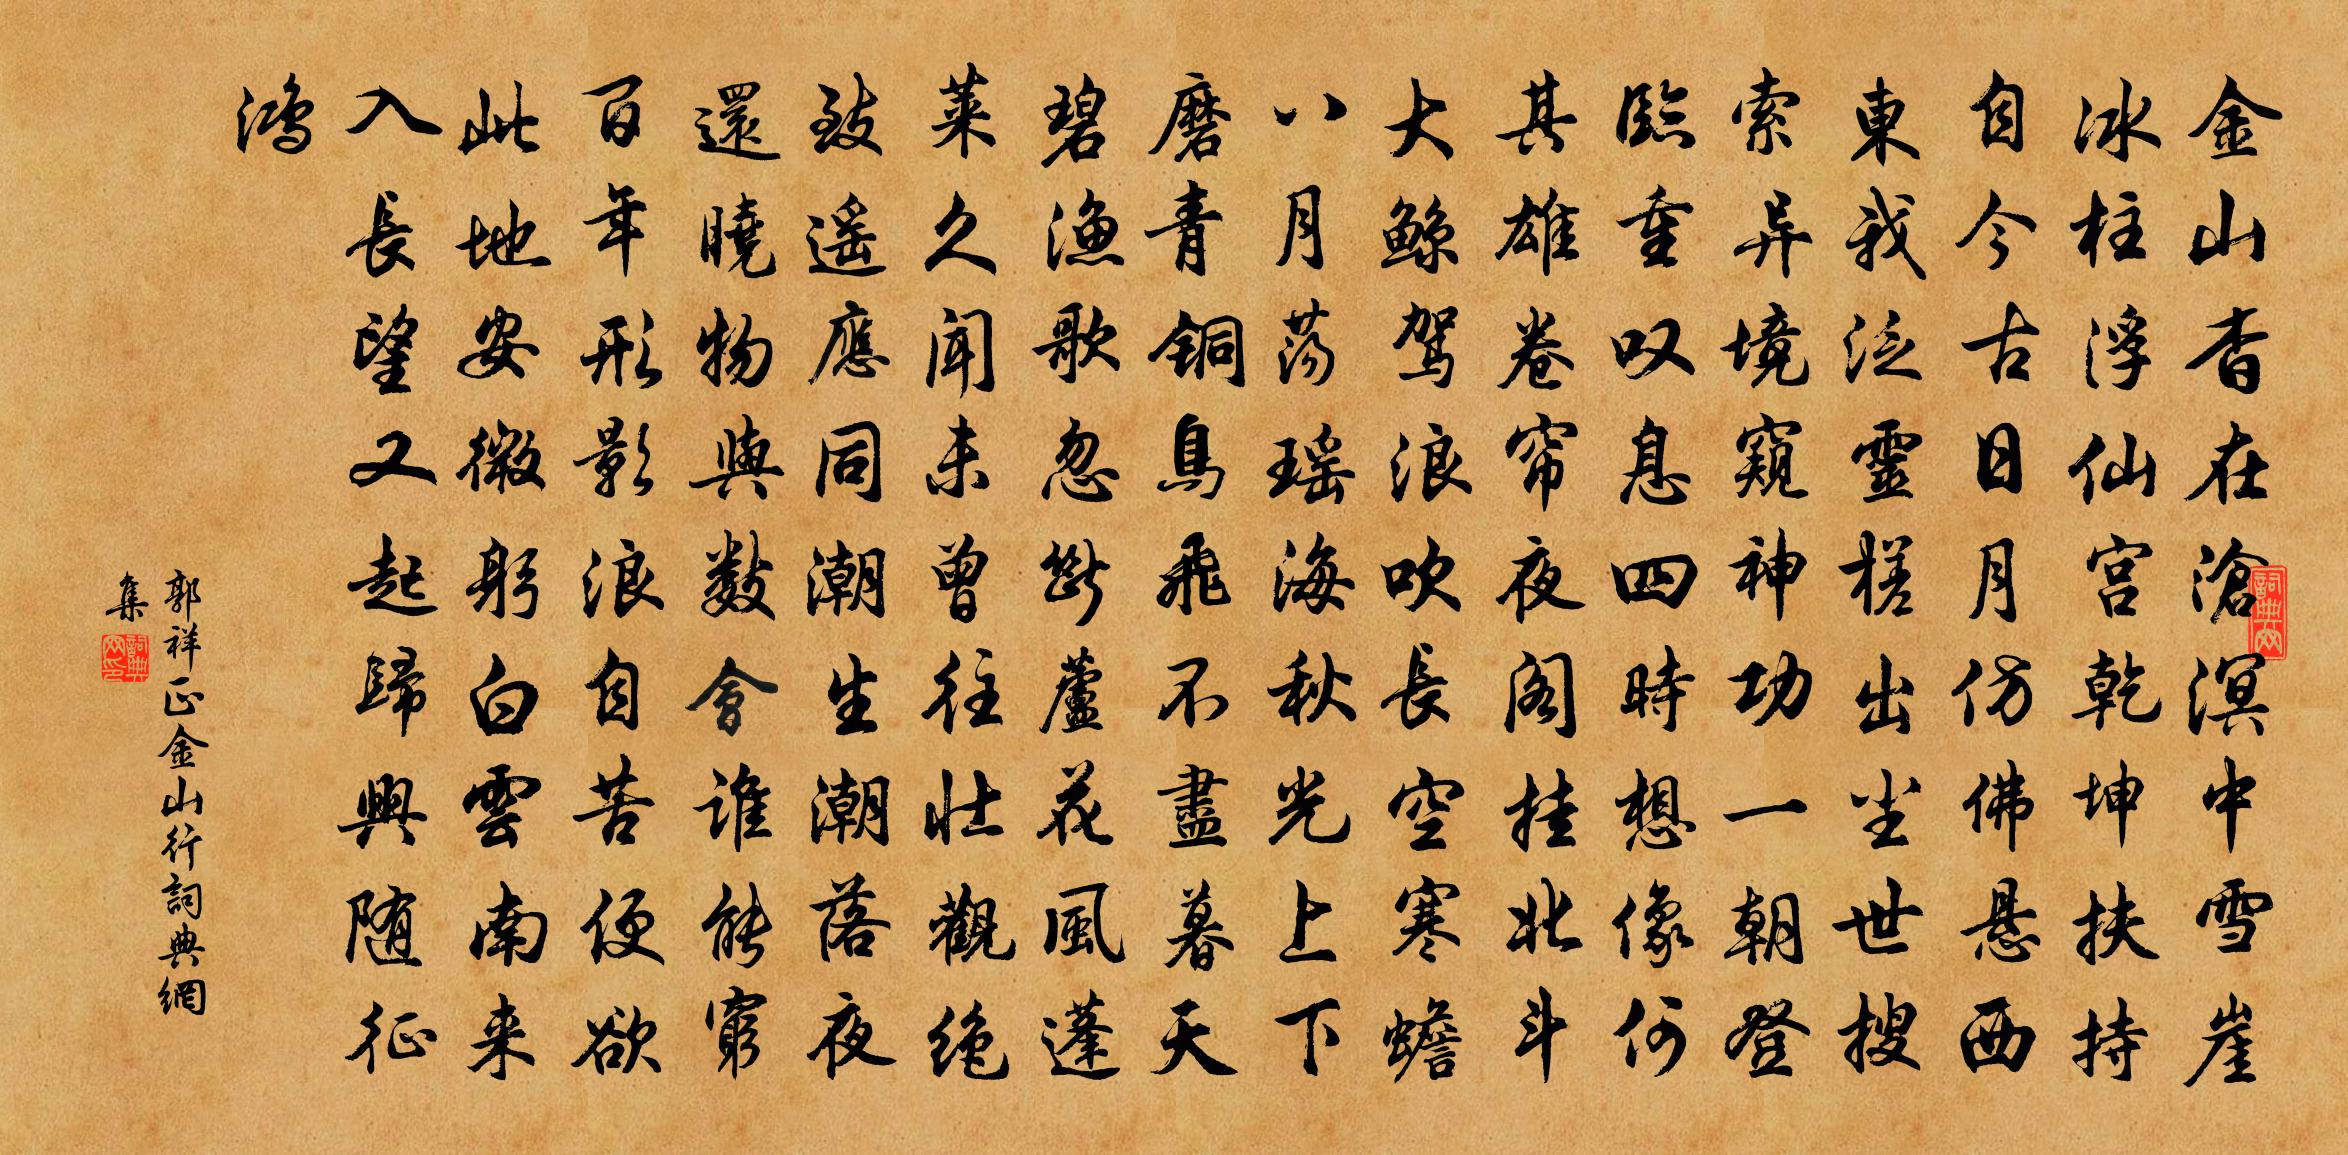 金山杳在滄溟中雪崖
冰柱浮仙宮乾坤扶持
自今古日月仿佛悬西
東我泛靈槎出尘世搜
索异境窺神功一朝登
臨重叹息四時想像何
其雄卷帘夜阁挂北斗
大鲸驾浪吹长空寒蟾
八月荡瑶海秋光上下
磨青铜鳥飛不盡暮天
碧漁歌忽斷蘆花風蓬
莱久闻未曾往壮觀绝
致遥應同潮生潮落夜
還曉物與數會谁能窮
百年形影浪自苦便欲
此地安微躬白雲南来
入長望又起歸興随征
鴻
郭祥正金山行詞典網
集
詞典网
詞典网印